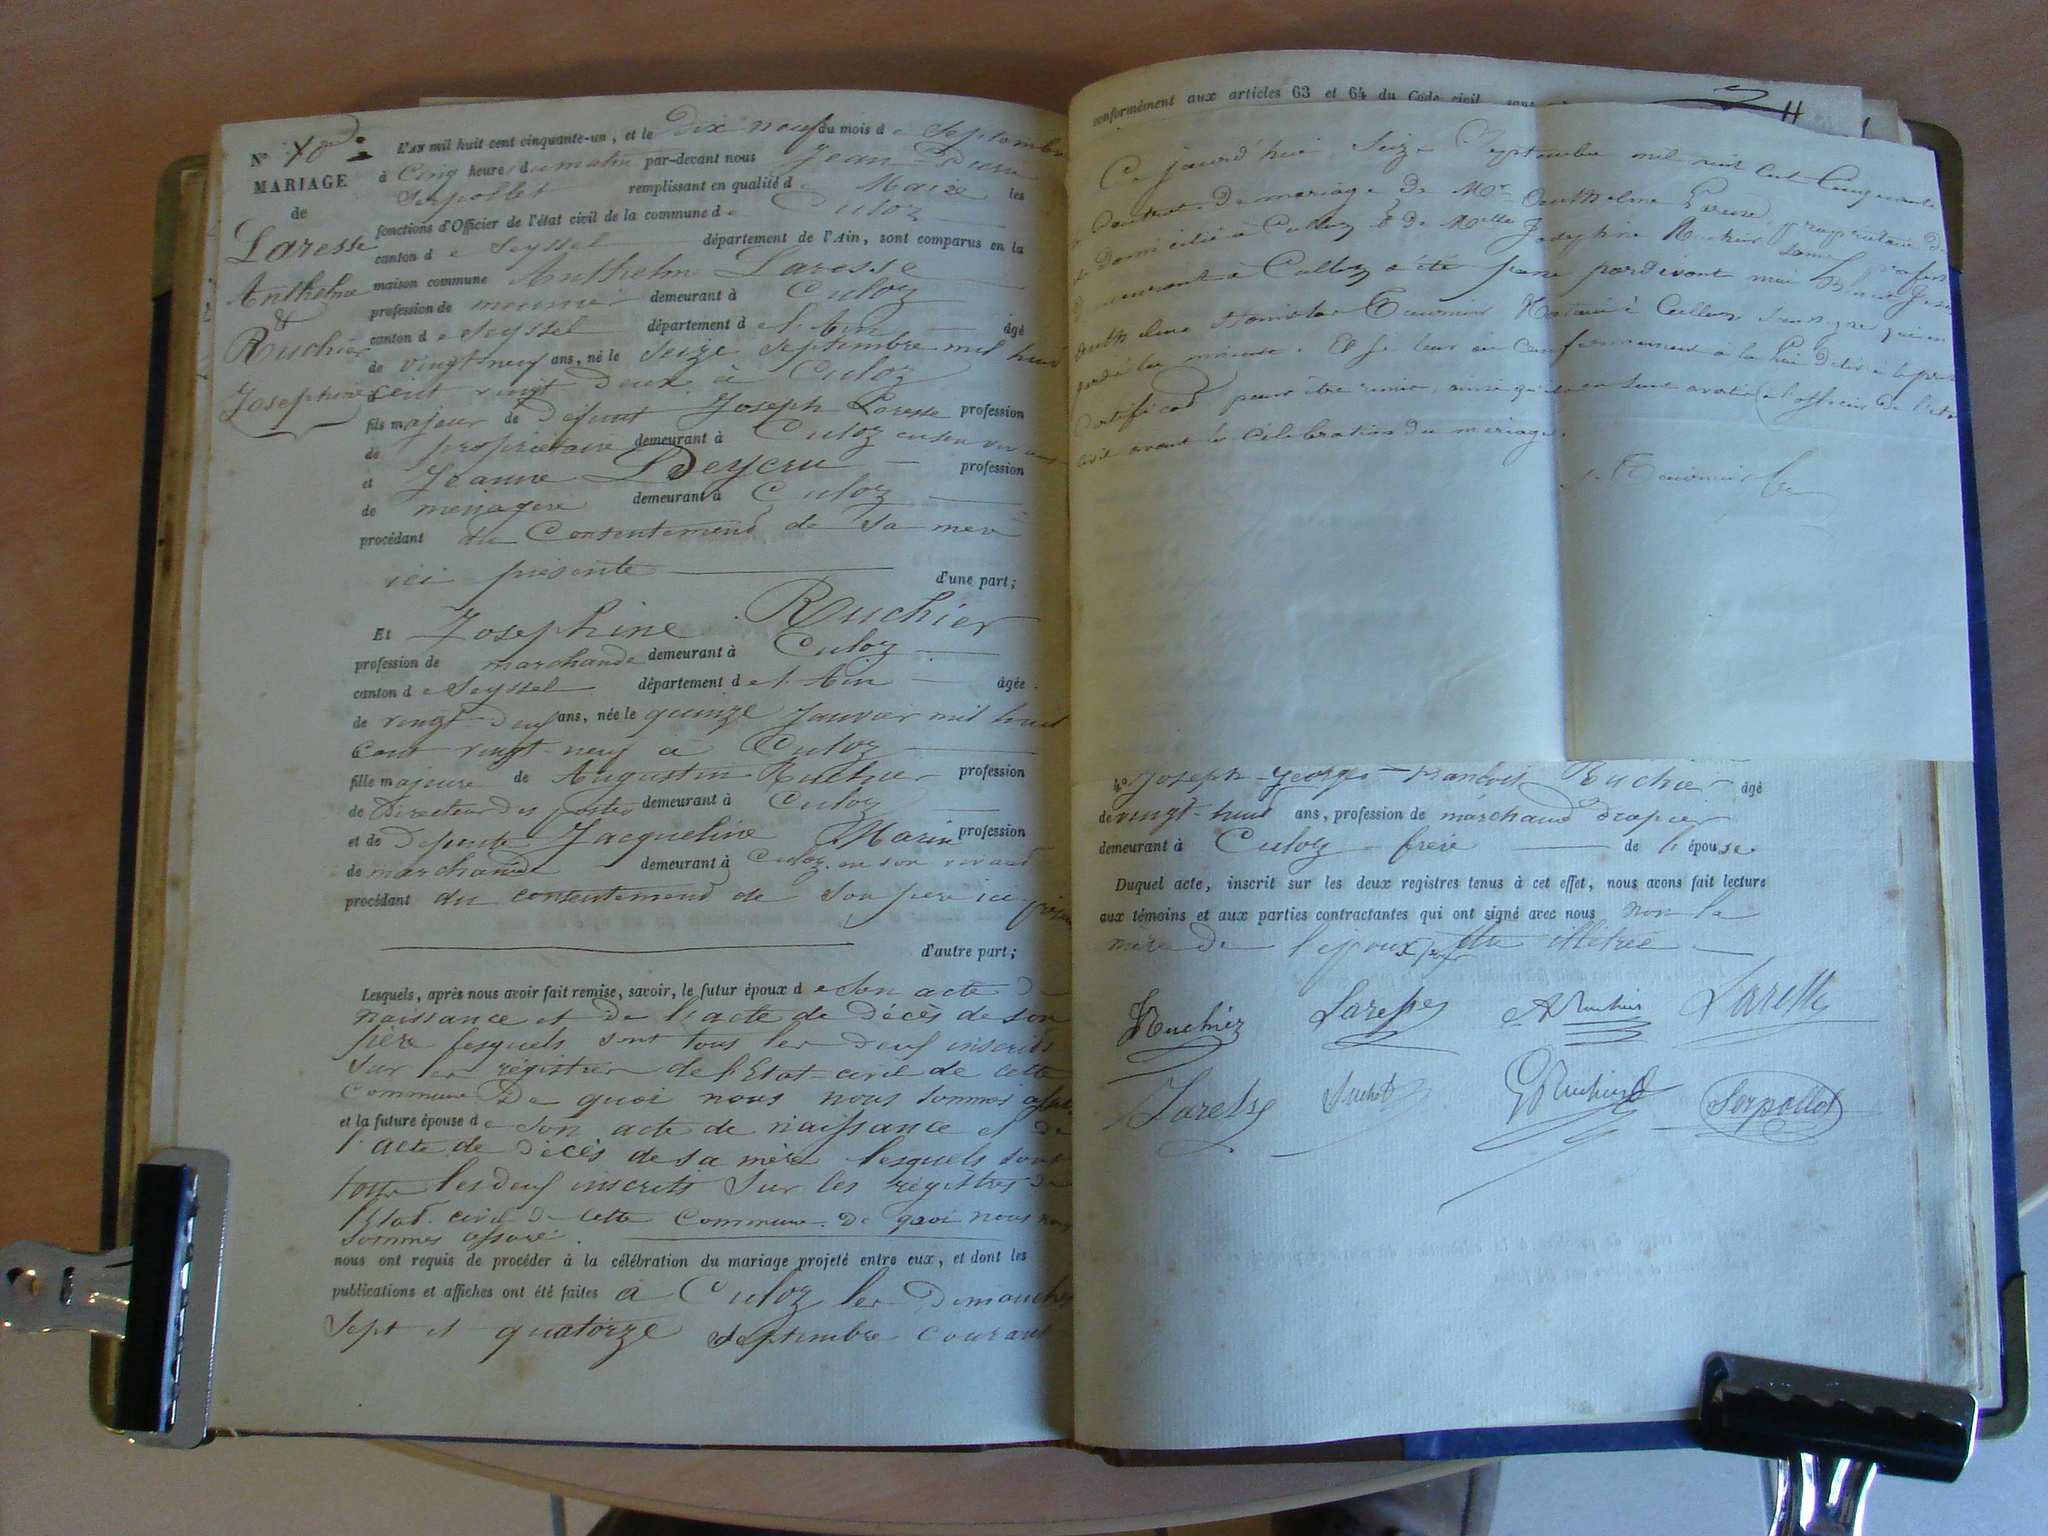 N°
MARIAGE
de
Laresse
Anthelme
&
Ruchier
Josephine
L'AN mil huit cent cinquante-un, et le Dix neuf du mois de Septembre
à Cinq heures du matin par-devant nous Jean Pierre
Serpollet remplissant en qualité de Maire les
fonctions d'Officier de l'état civil de la commune de Culoz
canton de Seyssel département de l'Ain, sont comparus en la
maison commune Anthelme Laresse
profession de meunier demeurant à Culoz
canton de Seyssel département de l'Ain âgé
de vingt neuf ans, né le Seize Septembre mil huit
cent vingt deux à Culoz
fils majeur de Défunt Joseph Laresse profession
de propriétaire demeurant à Culoz en son vivant
et Jeanne profession
de ménagère demeurant à Culoz
procédant du Consentement de Sa mere
ici présente d'une part;
Et Josephine Ruchier
profession de marchande demeurant à Culoz
canton de Seyssel département de l'Ain âgée
de vingt-deux ans, née le quinze Janvier mil huit
Cent vingt-neuf à Culoz
fille majeure de Augustin Ruchier profession
de Directeur des postes demeurant à Culoz
et de Défunte Jacqueline Marin profession
de marchande demeurant à Culoz en son vivant
procédant du consentement de Son pere ici
d'autre part;
Lesquels, après nous avoir fait remise, savoir, le futur époux de Son acte de
naissance et de l'acte de décès de son
père lesquels sont tous les deux inscrits
Sur les régistres de l'Etat-civil de cette
Commune De quoi nous nous sommes
et la future épouse de Son acte de naissance et de
l'acte de décès de sa mère lesquels sont
tous les deux inscrits Sur les régistres de
l'Etat civil de cette Commune. De quoi nous nous
Sommes assuré.
nous ont requis de procéder à la célébration du mariage projeté entre eux, et dont les
publications et affiches ont été faites à Culoz les Dimanches
Sept et quatorze Septembre courant
conformément aux articles 63 et 64 du Code civil
Ce jourd'hui Seize Septembre mil huit Cent Cinquante
Contrat de mariage de Mr Anthelme propriétaire
Domicilié à Culloz & de Melle Joséphine Ruchier sans profession
demeurant à Culloz a été passé pardevant moi
Anthelme Notaire à Culloz soussigné qui en
gardé la minute. Et je leur ai conformement à la loi délivré le présent
Certificat pour être remis, ainsi qu'ils en sont avertis, à l'officier de l'état
civil avant la célébration du mariage.
4° Joseph-Georges-François Ruchier âgé
de vingt-huit ans, profession de marchand drapier
demeurant à Culoz frère de l'épouse
Duquel acte, inscrit sur les deux registres tenus à cet effet, nous avons fait lecture
aux témoins et aux parties contractantes qui ont signé avec nous non la
mère de l'époux pour être illétrée
Ruchier Laresse A Ruchier Laresse
Laresse Ruchier Serpollet